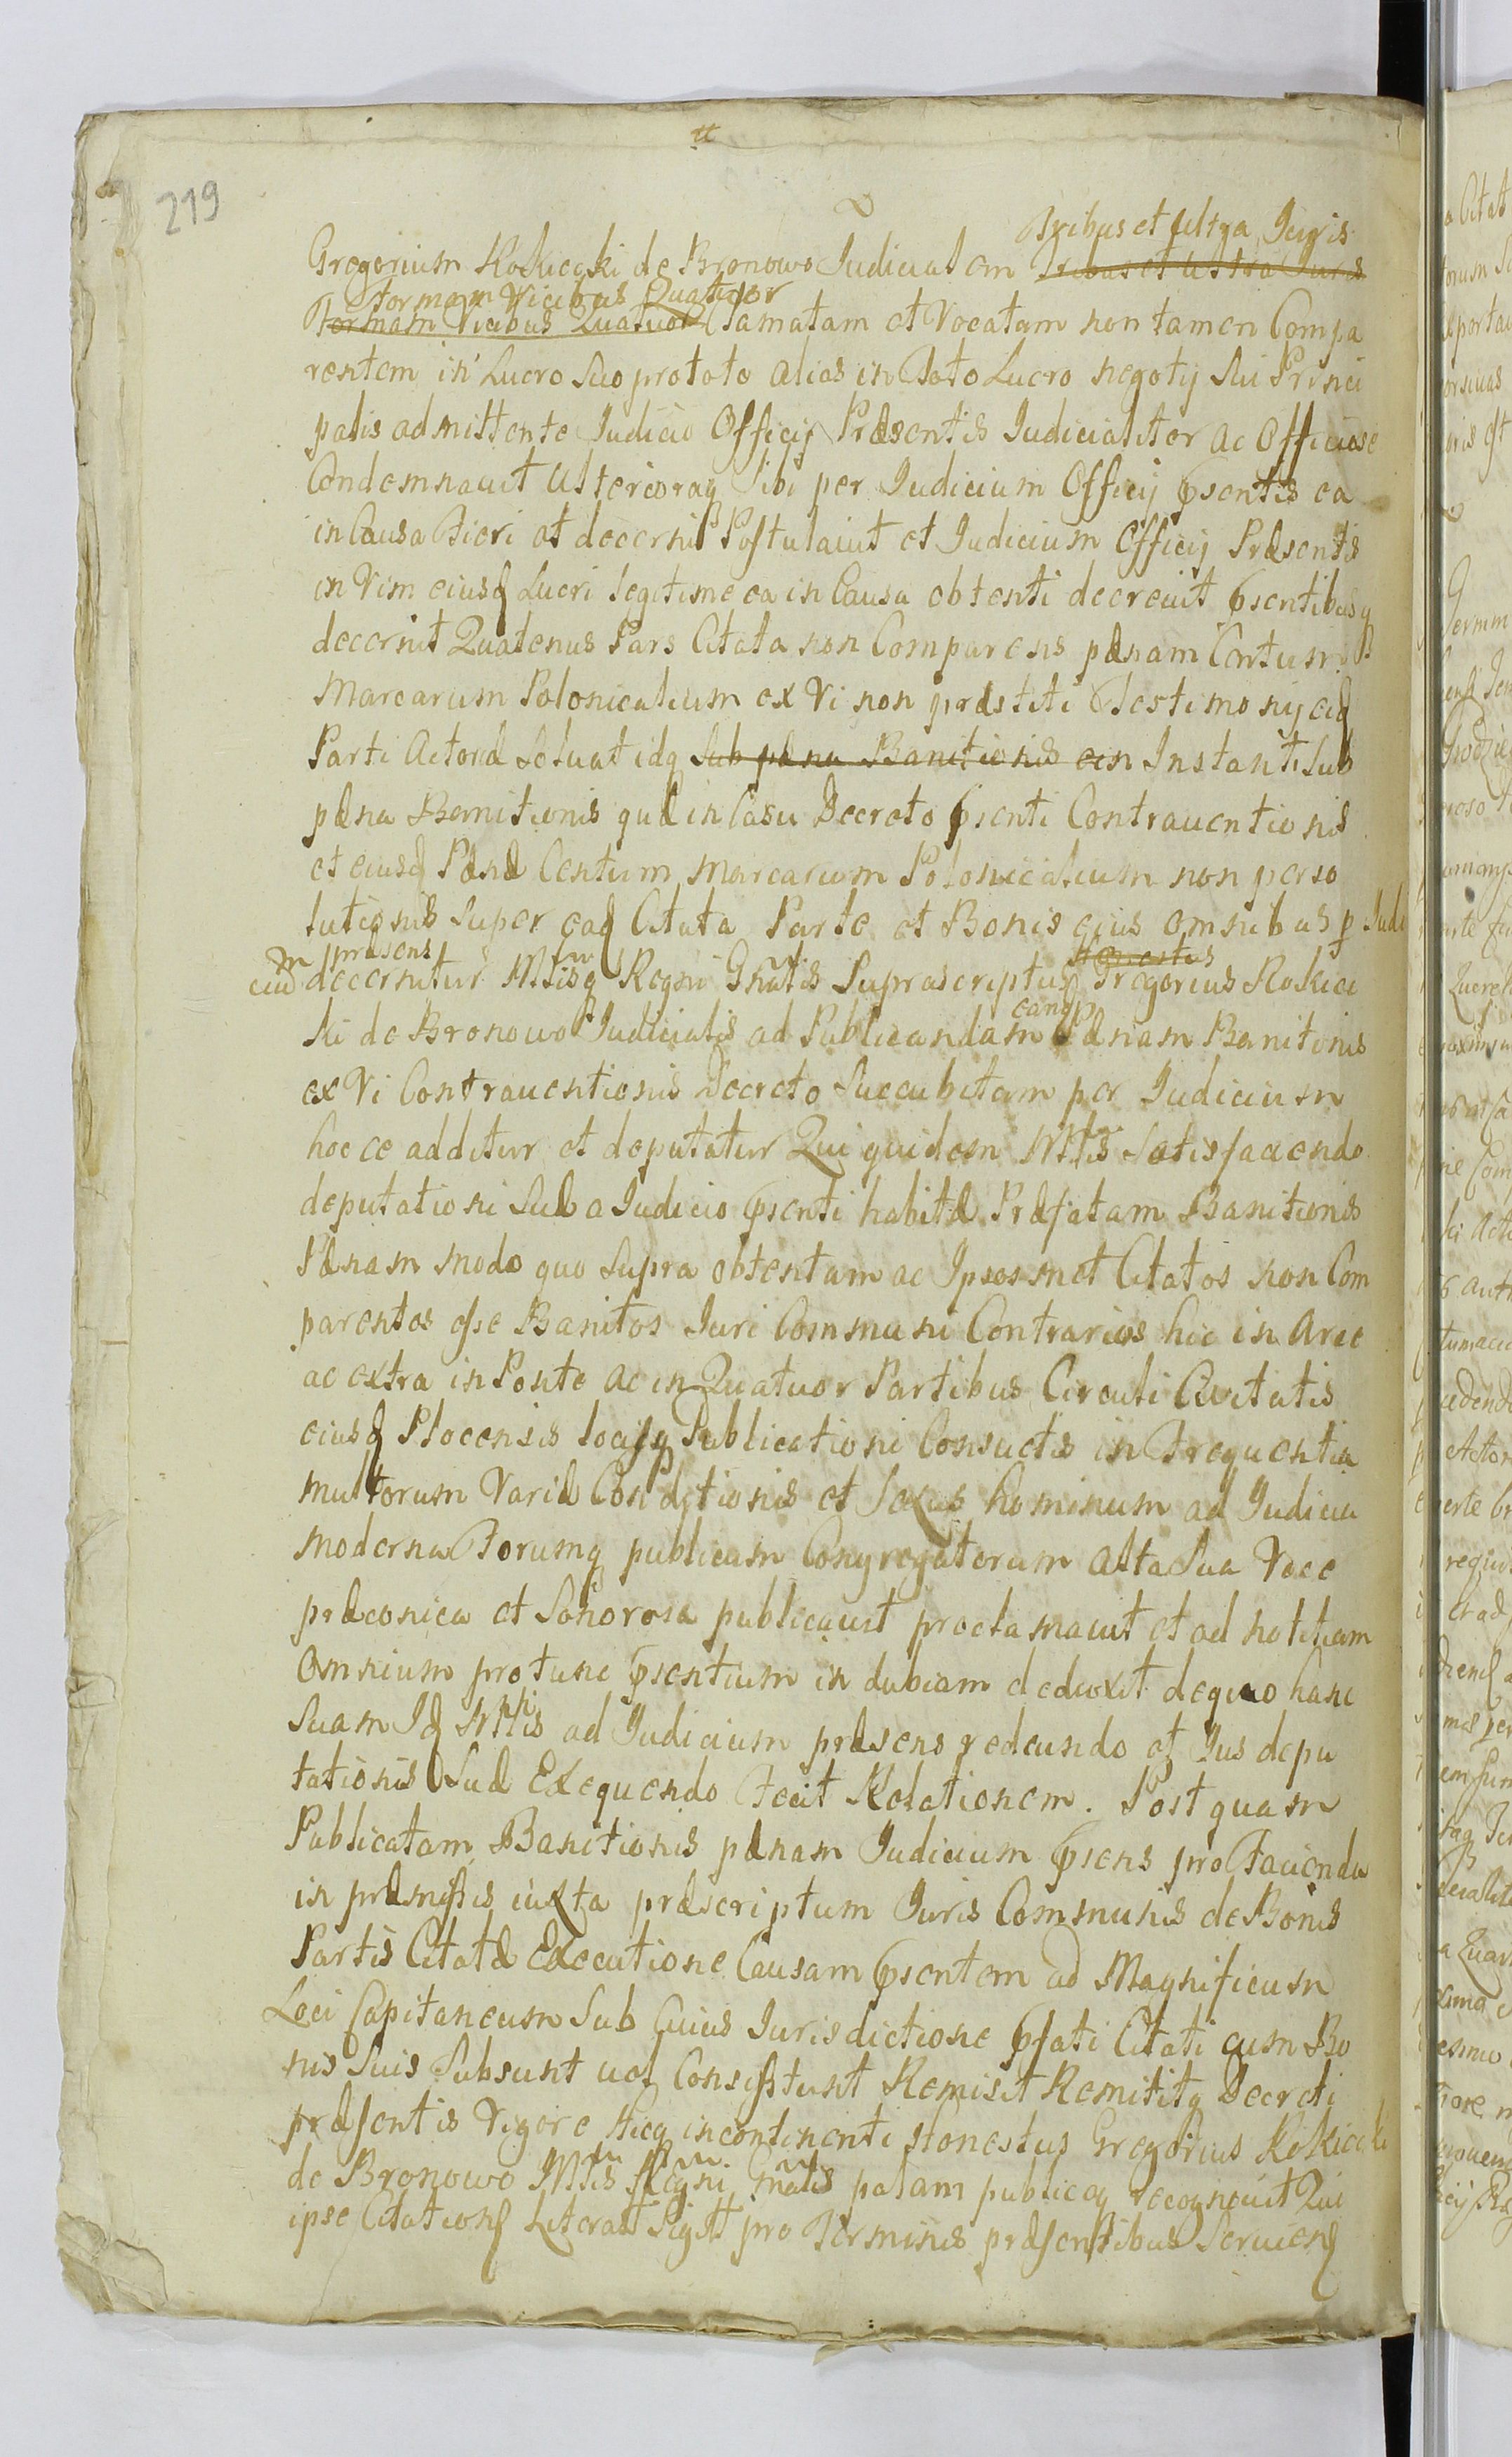 219
Tribus et ultra Juris
Gregorium Rokicÿki de Bronowo Judicialem Tribus et ultra Juris
formam Vicibus Quatuor
Formam Vicibus Quatuor Clamatam et Vocatam non tamen Compa
rentem in Lucro suo pro toto alias in Toto Lucro negotÿ sui Princi
palis admittente Judicio Officij Præsentis Judicialiter ac Officiose
Condemnauit Ulterioraq sibi per Judicium Officij Psentis ea
in Causa Fieri et decerni Postulauit et Judicium Officij Præsentis
in Vim eiusd Lucri legitime ea in Causa obtenti decreuit Psentibusq
decernit Quatenus Pars Citata non Comparens pænam Centum
Marcarum Polonicalium ex Vi non præstiti Testimonij eid
Parti Actoreæ Soluat idq sub pæna Banitionis ein Instanti sub
pæna Banitionis quæ in Casu Decreto Psenti Contrauentionis
et eiusd Pænæ Centum Marcarum Polonicalium non perso
lutionis super ead Citata Parte et Bonis eius omnibus p Judi
m præsens Honestus
ciu decernitur Mtlisq Regni Gnalis Suprascriptus Gregorius Rokici
eand
ki de Bronowo Judicialis ad Publicandam Pænam Banitionis
ex Vi Contrauentionis Decreto Succubitam per Judicium
hocce additur et deputatur Qui quidem Mtlis Satisfaciendo
deputationi Suæ a Judicio Psenti habitæ Præfatam Banitionis
Pænam modo quo supra obtentam ac Ipsosmet Citatos non Com
parentes esse Banitos Juri Communi Contrarios hic in Arce
ac extra in Ponte ac in Quatuor Partibus Circuli Ciuitatis
eiusd Plocensis locisq Publicationi Consuetis in Frequentia
multorum Variæ Conditionis et Sexus hominum ad Judicia
moderna Forumq publicum Congregatorum alta Sua Voce
præconica et Sonorosa publicauit proclamauit et ad notitiam
Omnium protunc Psentium in dubiam deduxit de quo hanc
Suam Id Mtlis ad Judicium præsens redeundo et Jus depu
tationis Suæ Exequendo Fecit Relationem. Post quam
Publicatam Banitionis pænam Judicium Psens pro Facienda
in præmissis iuxta præscriptum Juris Communis de Bonis
Partis Citatæ Executione Causam Psentem ad Magnificum
Loci Capitaneum Sub Cuius Jurisdictione Pfati Citati cum Bo
nis Suis Subsunt uel Consistunt Remisit Remititq Decreti
præsentis Vigore Hicq incontinenti Honestus Gregorius Rokicki
de Bronowo Mtlis Regni Gnalis palam publiceq recognouit Qui
ipse Citationes Literas Sigilt pro Terminis præsentibus Seruiens